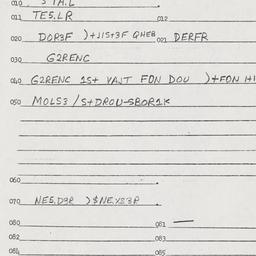 010
011 TES.LR 012
020 DOR3F )+JIS+3F QHEB 021 DERFR
030 G2RENC
040 G2RENC 1S+ VAJT FON DOU )+FON HI
050 MOLS3/S+DROU-SBOR1K
060
070 NES.D3R )$NEXS3R
080 081 —
082 083
084 085